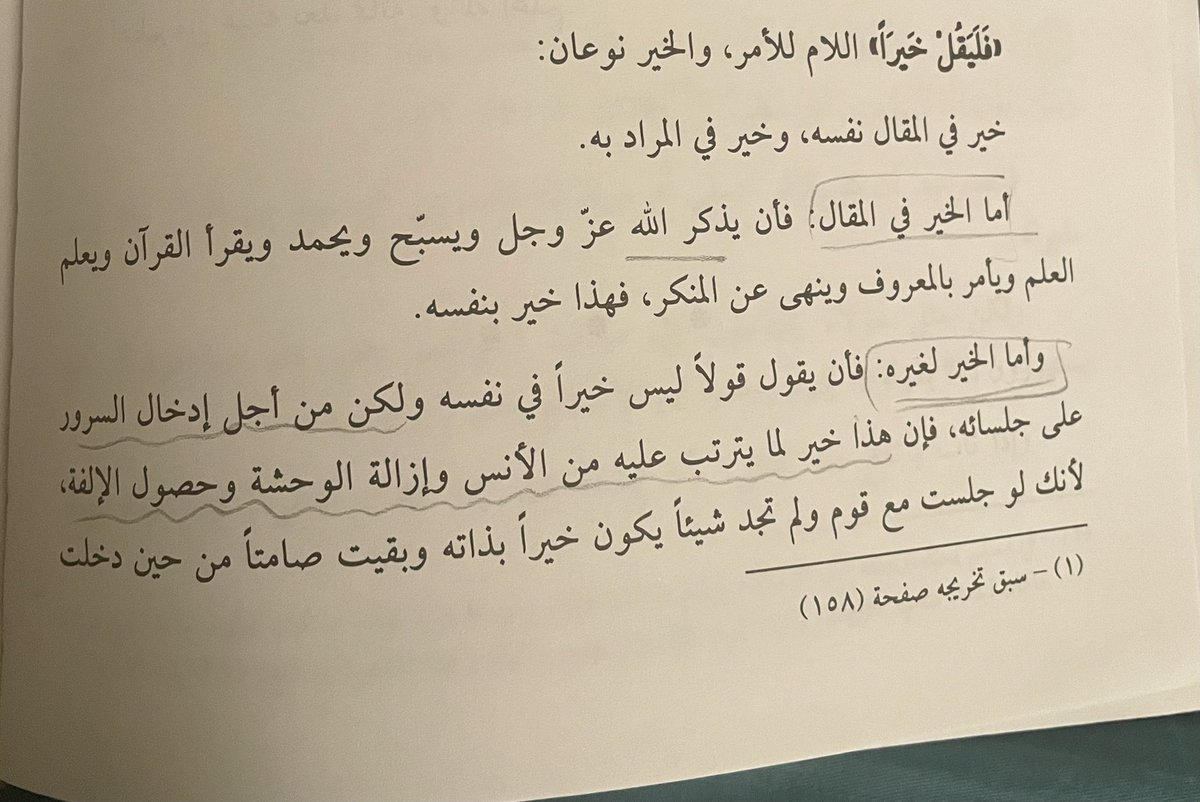 «فَلْيَقُلْ خَيرَاً» اللام للأمر، والخير نوعان:
خير في المقال نفسه، وخير في المراد به.
أما الخير في المقال: فأن يذكر الله عزّ وجل ويسبّح ويحمد ويقرأ القرآن ويعلم
العلم ويأمر بالمعروف وينهى عن المنكر، فهذا خير بنفسه.
وأما الخير لغيره: فأن يقول قولاً ليس خيراً في نفسه ولكن من أجل إدخال السرور
على جلسائه، فإن هذا خير لما يترتب عليه من الأنس وإزالة الوحشة وحصول الإلفة،
لأنك لو جلست مع قوم ولم تجد شيئاً يكون خيراً بذاته وبقيت صامتاً من حين دخلت
(١) – سبق تخريجه صفحة (١٥٨)